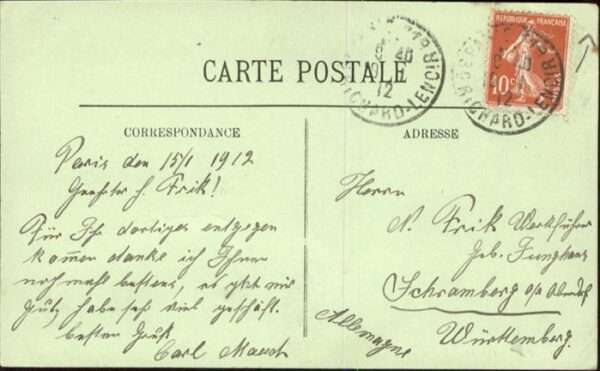 RÉPUBLIQUE FRANÇAISE
10 c
RICHARD-LENOIR
12
CARTE POSTALE
RICHARD-LENOIR
12
CORRESPONDANCE
ADRESSE
Paris den 15/1 1912
Geehrter H. Frik!
Für Ihr dortiges entgegen
kommen danke ich Ihnen
nochmals bestens, es geht mir
gut, habe sehr viel geschäft.
besten Gruß
Carl Mauch
Herrn
N. Frik Werkführer
Geb. Junghans
Schramberg o/a Oberndorf
Württemberg.
Allemagne